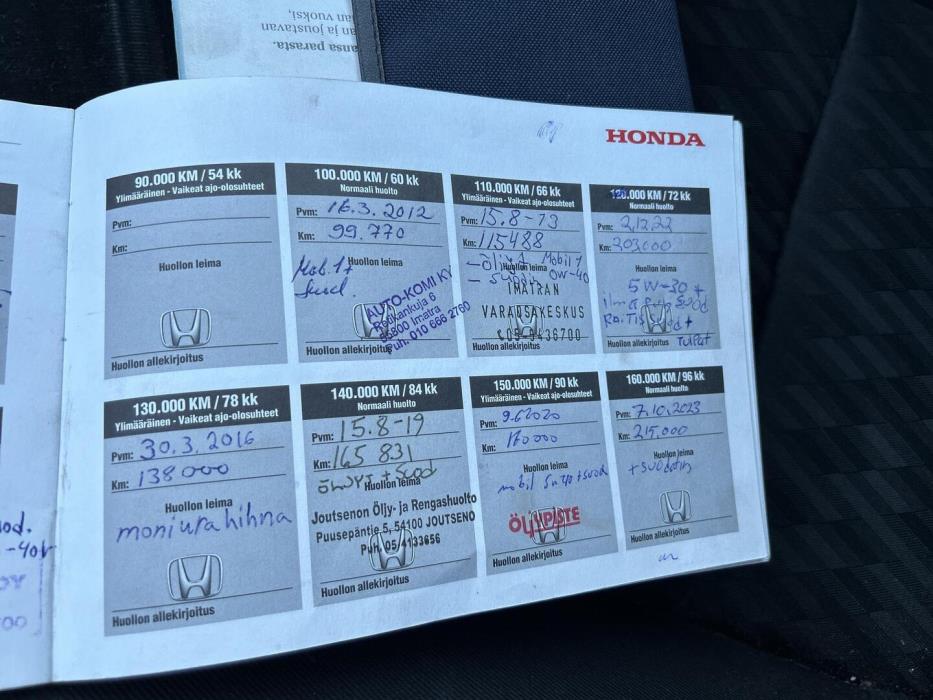 ansa parasta.
an ja joustavan
an vuoksi,
HONDA
90.000 KM / 54 kk
Ylimääräinen - Vaikeat ajo-olosuhteet
Pvm:
Km:
Huollon leima
Huollon allekirjoitus
100.000 KM / 60 kk
Normaali huolto
Pvm: 16.3.2012
Km: 99.770
Huollon leima
Mob. 1+
Suod.
AUTO-KOMI KY
55800 Imatra
Puh. 010 666 2760
Huollon allekirjoitus
110.000 KM / 66 kk
Ylimääräinen - Vaikeat ajo-olosuhteet
Pvm: 15.8-13
Km: 115488
Huollon leima
- öljyt Mobil 1
- Suodin 0W-40
IMATRAN
VARAOSAKESKUS
Huollon allekirjoitus
120.000 KM / 72 kk
Normaali huolto
Pvm: 2,12.22
Km: 203,000
Huollon leima
5W-30 +
Raitis suod +
Tulpat
Huollon allekirjoitus
130.000 KM / 78 kk
Ylimääräinen - Vaikeat ajo-olosuhteet
Pvm: 30.3.2016
Km: 138000
Huollon leima
moniurahihna
Huollon allekirjoitus
140.000 KM / 84 kk
Normaali huolto
Pvm: 15.8-19
Km: 165 831
öljyt + Suod
Huollon leima
Joutsenon Öljy- ja Rengashuolto
Puusepäntie 5, 54100 JOUTSENO
Puh. 05/4133656
Huollon allekirjoitus
150.000 KM / 90 kk
Ylimääräinen - Vaikeat ajo-olosuhteet
Pvm: 9.6.2020
Km: 170000
Huollon leima
mobil 5w40+suod
ÖLJYPISTE
Huollon allekirjoitus
160.000 KM / 96 kk
Normaali huolto
Pvm: 7.10.2023
Km: 215.000
Huollon leima
+ suodatin
Huollon allekirjoitus